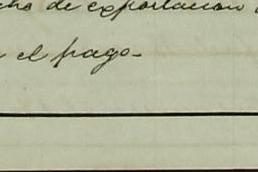 de exportacion
el pago.